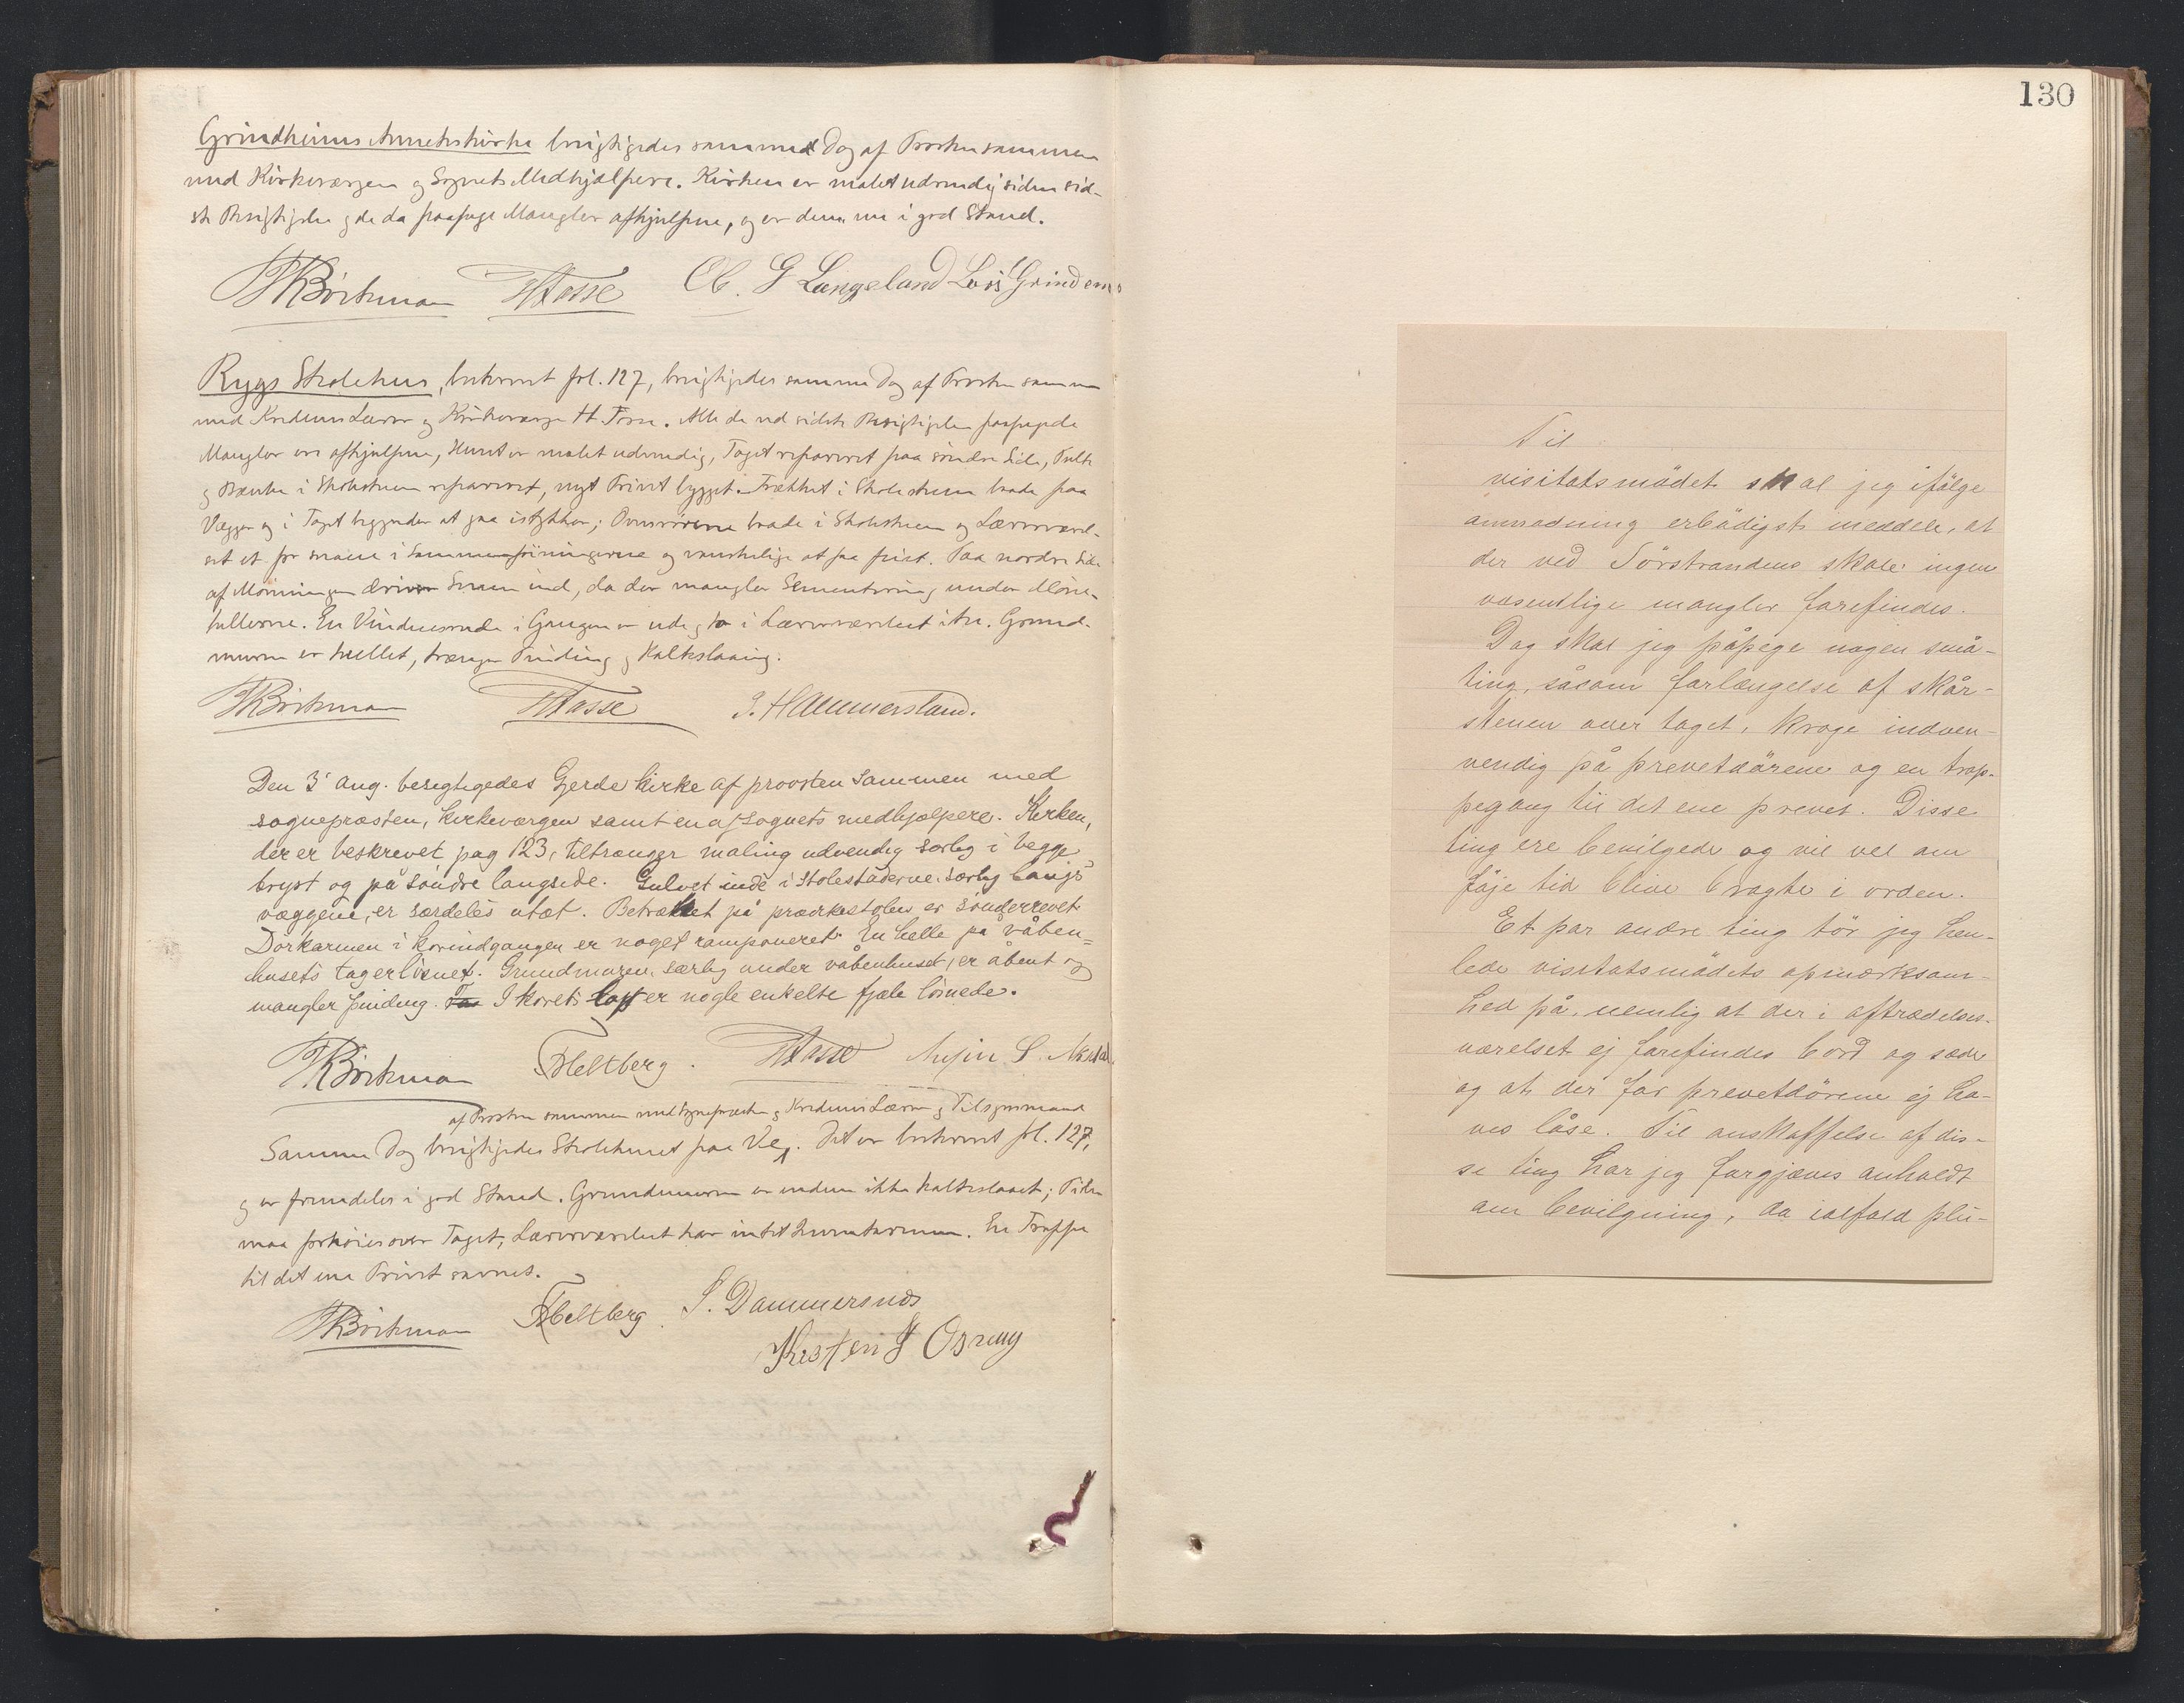 Grindheims Annekskirke besigtigedes samme Dag af Provsten sammen
med Kirkeværgen og Sognets Medhjælpere. Kirken er malet udvendig siden sid-
ste Besigtigelse og de da paapegte Mangler afhjulpne, og er den nu i god Stand.
JKBörkman HFosse Ol. G Langeland Lars Grindem
Rygs Skolehus, beskrevet fol. 127, besigtigedes samme Dag af Provsten sammen
med Kredsens Lærer og Kirkeværge H. Fosse. Alle de ved sidste Besigtigelse paapegede
Mangler ere afhjulpne, Huset er malet udvendig, Taget repareret paa søndre Side, Pulte
og Bænke i Skolestuen repareret, nyt Privet bygget. Trækket i Skolestuen baade paa
Vægge og i Taget begynder at gaa istykker; Ovnsrørene baade i Skolestuen og Lærerværel-
set er for snaue i Sammenføiningerne og vanskelige at faa feiet. Paa nordre Side
af Mønningen driver Sneen ind, da der mangler Sementering under Møne-
hellerne. En Vinduesrude i Gangen er ude og to i Lærerværelset itu. Grund-
muren er hullet, trænger Pinding og Kalkslaaing.
JKBörkman HFosse J. Hammersland.
Den 3' Aug. besigtigedes Gjerde kirke af provsten sammen med
sognepræsten, kirkeværgen samt en af sognets medhjælpere. Kirken,
der er beskrevet pag 123, tiltrænger maling udvendig særlig i begge
bryst og på søndre langside. Gulvet inde i stolestaderne særlig langs
væggene, er særdeles utæt. Betrækket på prædikestolen er sønderrevet.
Dørkarmen i korindgangen er noget ramponeret. En helle på våben=
husets tag er løsnet. Grundmuren, særlig under våbenhuset, er åbent og
mangler pinding. I korets loft er nogle enkelte fjæle løsnede.
JKBörkman Heltberg. HFosse S.
af Provsten sammen med Sognepræsten og Kredsens Lærer og Tilsynsmand
Samme Dag besigtigedes Skolehuset paa Ve. Det er beskrevet fol. 127,
og er fremdeles i god Stand. Grundmuren er endnu ikke kalkslaaet; Piben
maa forhøies over Taget, Lærerværelset har intet Inventarium. En Trappe
til det ene Privet savnes.
JKBörkman Heltberg. S. Dammersnes
Kristen J Osmug
130
Til
visitatsmødet skal jeg ifølge
anmodning erbødigst meddele, at
der ved Sørstrandens skole ingen
væsentlige mangler forefindes.
Dog skal jeg påpege nogen små-
ting, såsom forlængelse af skår-
stenen over taget, kroge indven-
vendig på prevetdørene og en trap-
pegang til det ene prevet. Disse
ting ere bevilgede og vil vel om
føje tid blive bragte i orden.
Et par andre ting tør jeg hen-
lede visitatsmødets opmærksom-
hed på, nemlig at der i aftrædelses-
værelset ej forefindes bord og sæde
og at der for prevetdørene ej ha-
ves låse. Til anskaffelse af dis-
se ting har jeg forgjæves anholdt
om bevilgning, da ialfald plu-